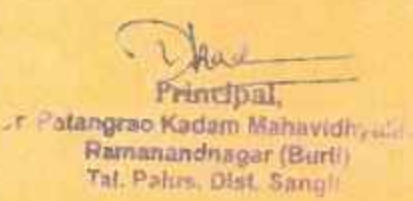 Principal,
Patangrao Kadam Mahavidhyala
Ramanandnagar (Burli)
Tal. Palus, Dist. Sangli